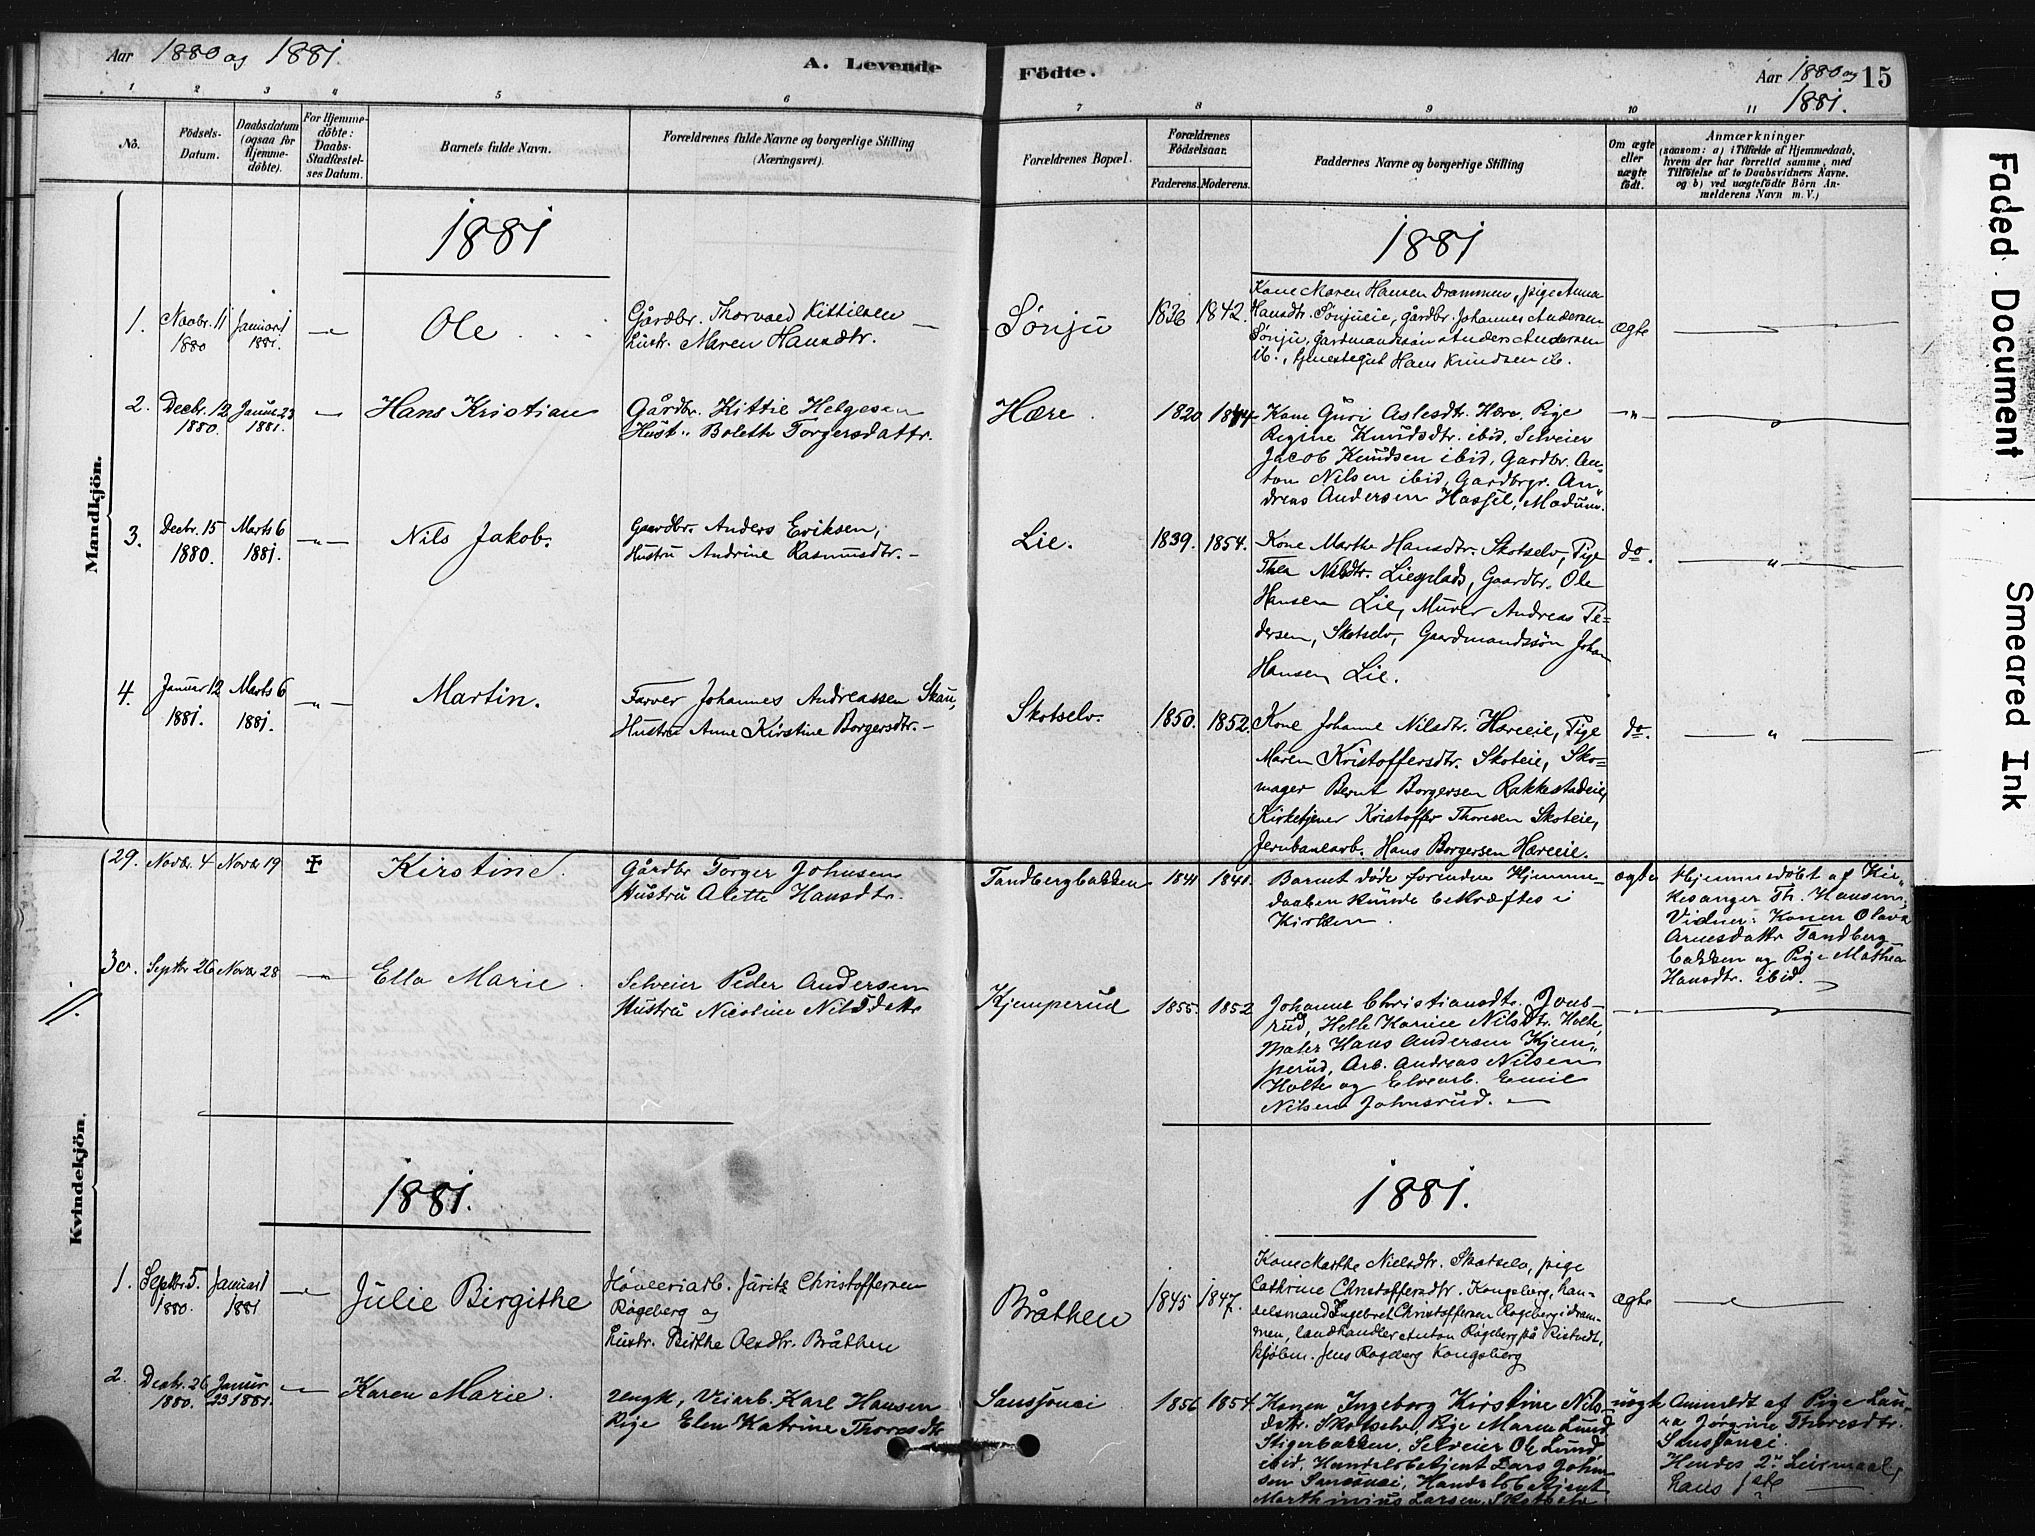 Aar 1880 og 1881.
A. Levende
Födte.
Aar 1880 og 1881.
15
1 2 3 4 5 6 7 8 9 10 11
No.
Födsels-
Datum.
Daabsdatum
(ogsaa for
Hjemme-
döbte).
For Hjemme-
döbte:
Daabs-
Stadfæstel-
ses Datum.
Barnets fulde Navn.
Forældrenes fulde Navne og borgerlige Stilling
(Næringsvei).
Forældrenes Bopæl.
Forældrenes
Födselsaar.
Faderens. Moderens.
Faddernes Navne og borgerlige Stilling
Om ægte
eller
uægte
födt.
Anmærkninger
(saasom: a) i Tilfælde af Hjemmedaab,
hvem der har forrettet samme, med
Tilföielse af to Daabsvidners Navne.
og b) ved uægtefödte Börn An-
melderens Navn m. V.)
Mandkjön.
1881
1881
1. Novbr. 11 1880 Januar 1 1881. Ole
Gårdbr. Thorvald Kittilsen
hustr. Maren Hansdtr.
Sönju 1836 1842.
Kone Maren Hansen Drammen, pige Anna
Hansdtr. Sönjueie, gårdbr. Johannes Andersen
Sönju, gårdmandssön Anders Andersen
ib., Hans Knudsen ib.
ægte
2. Decbr. 12 1880. Januar 23 1881. Hans Kristian
Gårdbr. Kittil Helgesen
Hust. Bolethe Torgersdattr.
Hære. 1820 1844
Kone Guri Aslesdtr. Hære, Pige
Regine Knudsdtr. ibid, Selveier
Jacob Knudsen ibid, Gardbr. An-
ton Nilsen ibid, Gardbrgr. An-
dreas Andersen Hassel, Modum.
3. Decbr. 15 1880. Marts 6 1881. Nils Jakob.
Gaardbr. Anders Eriksen,
Hustru Andrine Rasmusdtr. –
Lie. 1839. 1854.
Kone Marthe Hansdtr. Skotselv, Pige
Thea Nilsdtr. Lieplads, Gaardbr. Ole
Hansen Lie, Murer Andreas Pe-
dersen, Skotselv, Gaardmandssön Johan
Hansen Lie.
do.
4. Januar 12 1881. Marts 6 1881. Martin.
Farver Johannes Andreassen Skau,
Hustru Anne Kirstine Borgersdtr. –
Skotselv. 1850. 1852.
Kone Johanne Nilsdtr. Hæreeie, Pige
Maren Kristoffersdtr. Skoteie, Sko-
mager Bernt Borgersen Rakkestadeie,
Kirketjener Kristoffer Thoresen Skoteie,
Jernbanearb. Hans Borgersen Hæreeie.
do.
Kvindekjön.
29. Novbr. 4 Novbr. 19 Kirstine.
Gårdbr Torger Johnsen
Hustru Alette Hansdtr.
Tandbergbakken 1841 1841.
Barnet döde forinden Hjemme-
daaben kunde bekræftes i
Kirken.
ægte
Hjemmedöbt af Kir-
kesanger Th. Hansen;
Vidner: Konen Olava
Arnesdattr Tandberg-
bakken og Pige Mathea
Hansdtr. ibid.
30. Septbr 26 Novbr 28 Ella Marie.
Selveier Peder Andersen
Hustru Nicoline Nilsdattr
Kjemperud 1855. 1852
Johanne Christiansdtr. Jons-
rud, Helle Karine Nilsdtr. Holte,
Maler Hans Andersen Kjem-
perud, Arb. Andreas Nilsen
Holte og Elvearb. Emil
Nilsen Johnsrud.
1881.
1881.
1. Septbr 5. 1880. Januar 1 1881 Julie Birgithe
Hövleriarb. Christoffersen
Rogeberg og
hustr. Birthe Olsdtr. Bråthen
Bråthen 1845 1847.
Kone Marthe Nielsdtr. Skotselv, pige
Cathrine Christoffersdtr. Kongsberg, han-
delsmand Ingebret Christoffersen Rogeberg i Dram-
men, landhandler Anton Rogeberg på
Jens Rogeberg Kongsberg
ægte
2. Decbr. 26 1880. Januar 23 1881. Karen Marie.
Ungk, Veiarb. Karl Hansen
Pige Elen Katrine Thoresdtr
Sansfouci 1856 1854
Konen Ingeborg Kirstine Nils-
dattr. Skotselv, Pige Maren Lund
Stigerbakken, Selveier Ole Lund
ibid, Handelsbetjent Lars John-
sen Sansouci, Handelsbetjent
Marthinius Larsen, Skotselv
uægte
Anmeldt af Pige Lau-
ra Jörgine Thoresdtr.
Sansfouci.
Hendes 2det Leiermaal,
hans 1ste
Faded Document
Smeared Ink